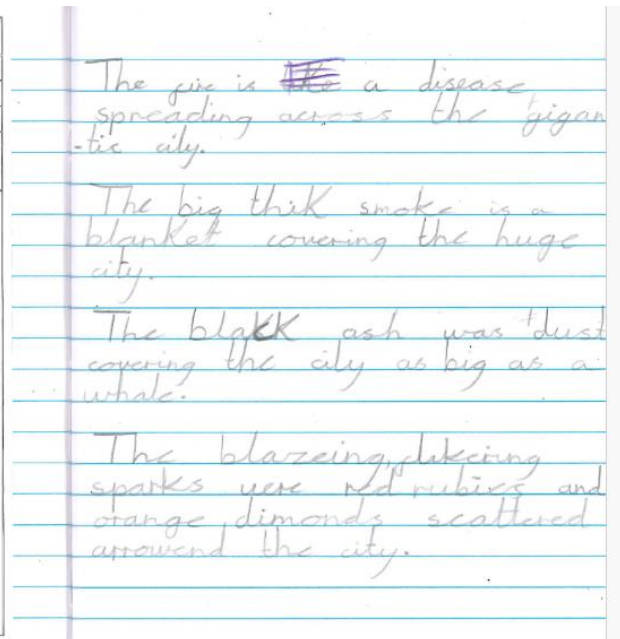 The fire is a disease
spreading across the gigan
-tic city.
The big thik smoke is a
blanket covering the huge
city.
The blakk ash was dust
covering the city as big as a
whale.
The blazeing,
sparks were red rubies and
orange dimonds scattered
arrowend the city.